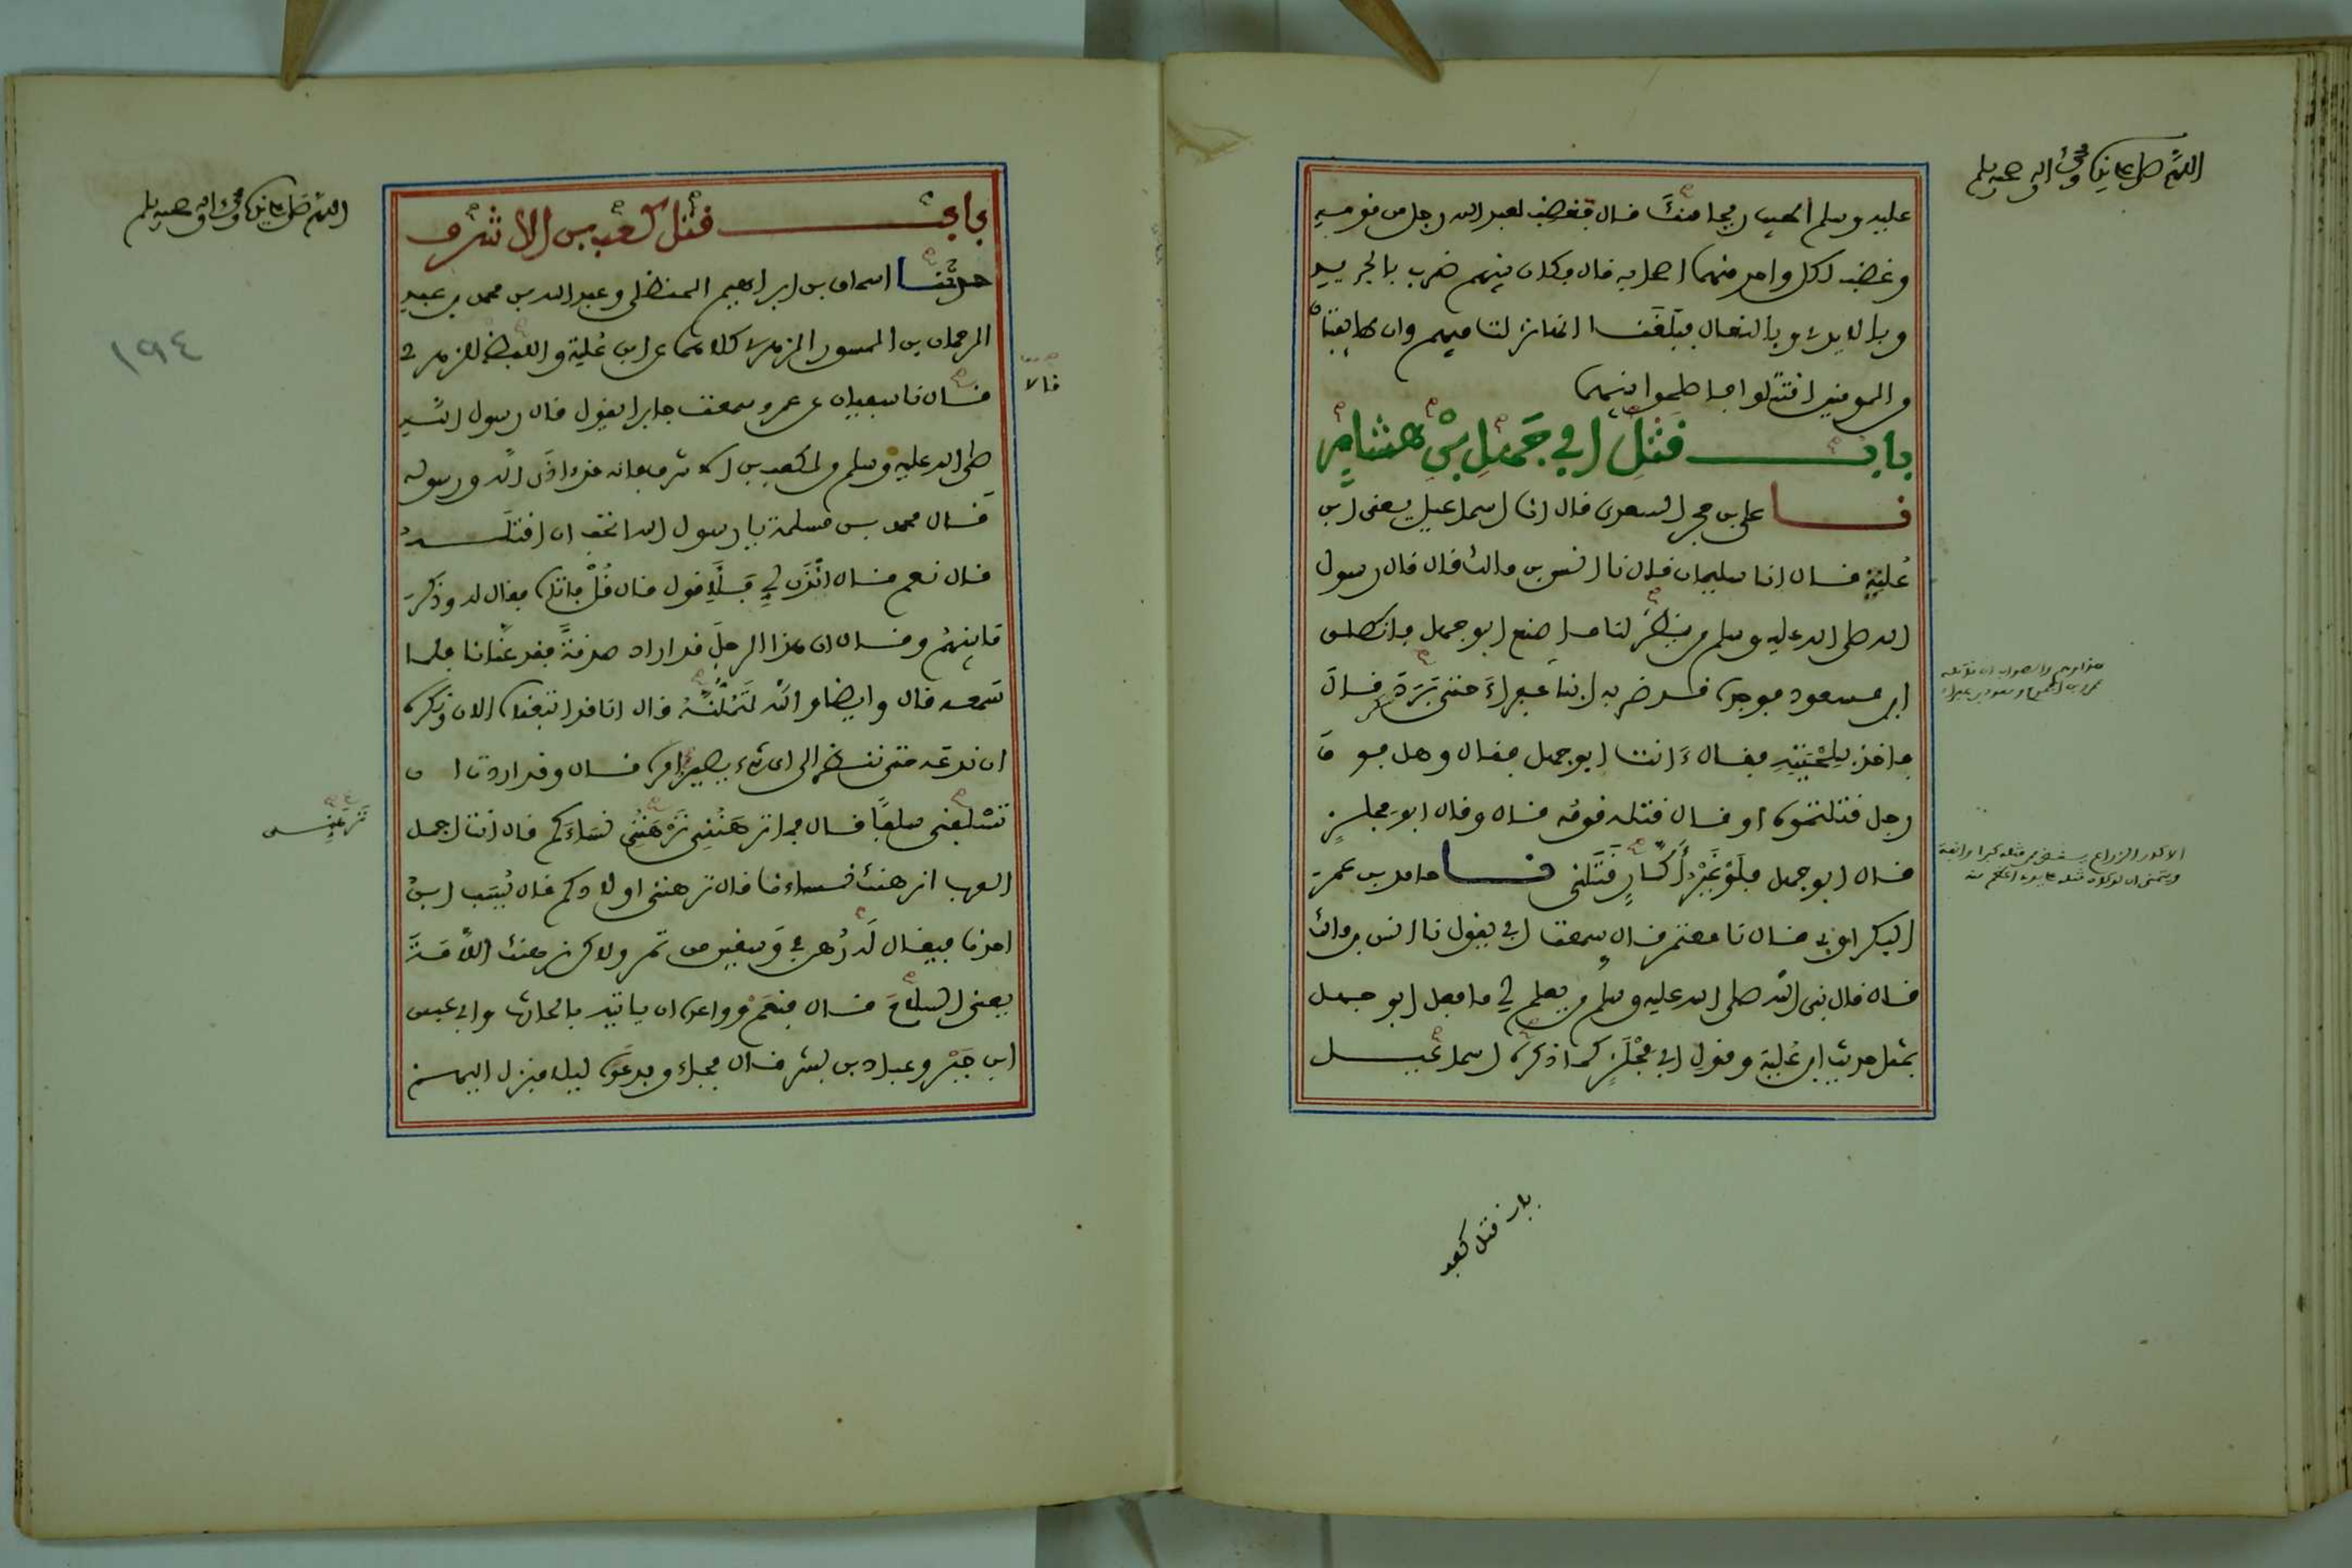 اللهم صل على نبينا محمد وآله وصحبه وسلم
عليه وسلم أطيب ريحا منك قال فغضب لعبد الله رجل من قومه
وغضب لكل واحد منهما أصحابه قال وكان بينهم ضرب بالجريد
وبالأيدي وبالنعال فبلغنا انها نزلت فيهم وإن طايفتان
من المومنين اقتتلوا فأصلحوا بينهما
باب قتل أبي جهل بن هشام
نا علي بن حجر السعدي قال انا اسماعيل يعني ابن
علية قال انا سليمان قال نا انس بن مالك قال قال رسول
الله صلى الله عليه وسلم من ينظر لنا ما صنع ابو جهل فانطلق
ابن مسعود فوجده قد ضربه ابنا عفراء حتى برد قال
فأخذ بلحيته فقال ءانت ابو جهل فقال وهل فوق
رجل قتلتموه او قال قتله قومه قال وقال ابو مجلز
قال ابو جهل فلو غير أكار قتلني نا حامد بن عمر
البكراوي قال نا معتمر قال سمعت ابي يقول نا انس بن مالك
قال قال نبي الله صلى الله عليه وسلم من يعلم لي ما فعل ابو جهل
بمثل حديث ابن علية وقول ابي مجلز كما ذكره اسماعيل
هذا وهم والصواب ان قاتله
الاكار الزراع
باب قتل كعب
اللهم صل على نبينا محمد وآله وصحبه وسلم
١٩٤
باب قتل كعب بن الاشرف
حدثنا اسحاق بن ابراهيم الحنظلي وعبد الله بن محمد بن عبد
الرحمان بن المسور الزهري كلاهما عن ابن عيينة واللفظ للزهري
قالا
قال نا سفيان عن عمرو سمعت جابرا يقول قال رسول الله
صلى الله عليه وسلم من لكعب بن الاشرف فانه قد اذى الله ورسوله
قال محمد بن مسلمة يا رسول الله اتحب ان اقتله
قال نعم قال ائذن لي فلأقول قال قل فاتاه فقال له وذكر
ما بينهم وقال ان هذا الرجل قد اراد صدقة وقد عنانا فلما
سمعه قال وايضا والله لتملنه قال انا قد اتبعناه الان ونكره
ان ندعه حتى ننظر الى اي شيء يصير امره قال وقد اردت ان
تسلفني سلفا قال فما ترهنني ترهنني نساءكم قال انت اجمل
العرب انرهنك نساءنا قال ترهنني اولادكم قال يسب ابن
احدنا فيقال رهن في وسقين من تمر ولاكن نرهنك اللأمة
يعني السلاح قال فنعم وواعده ان ياتيه بالحارث وابي عبس
ابن جبر وعباد بن بشر قال فجاءوا فدعوه ليلا فنزل اليهم